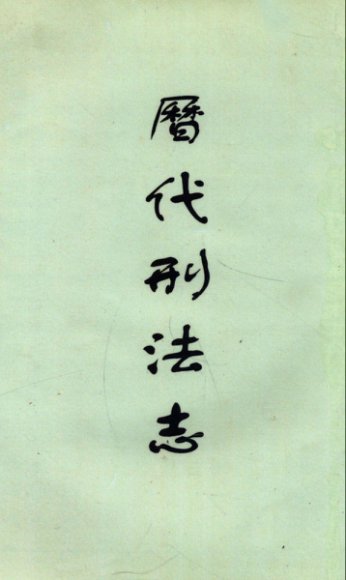 曆代刑法志